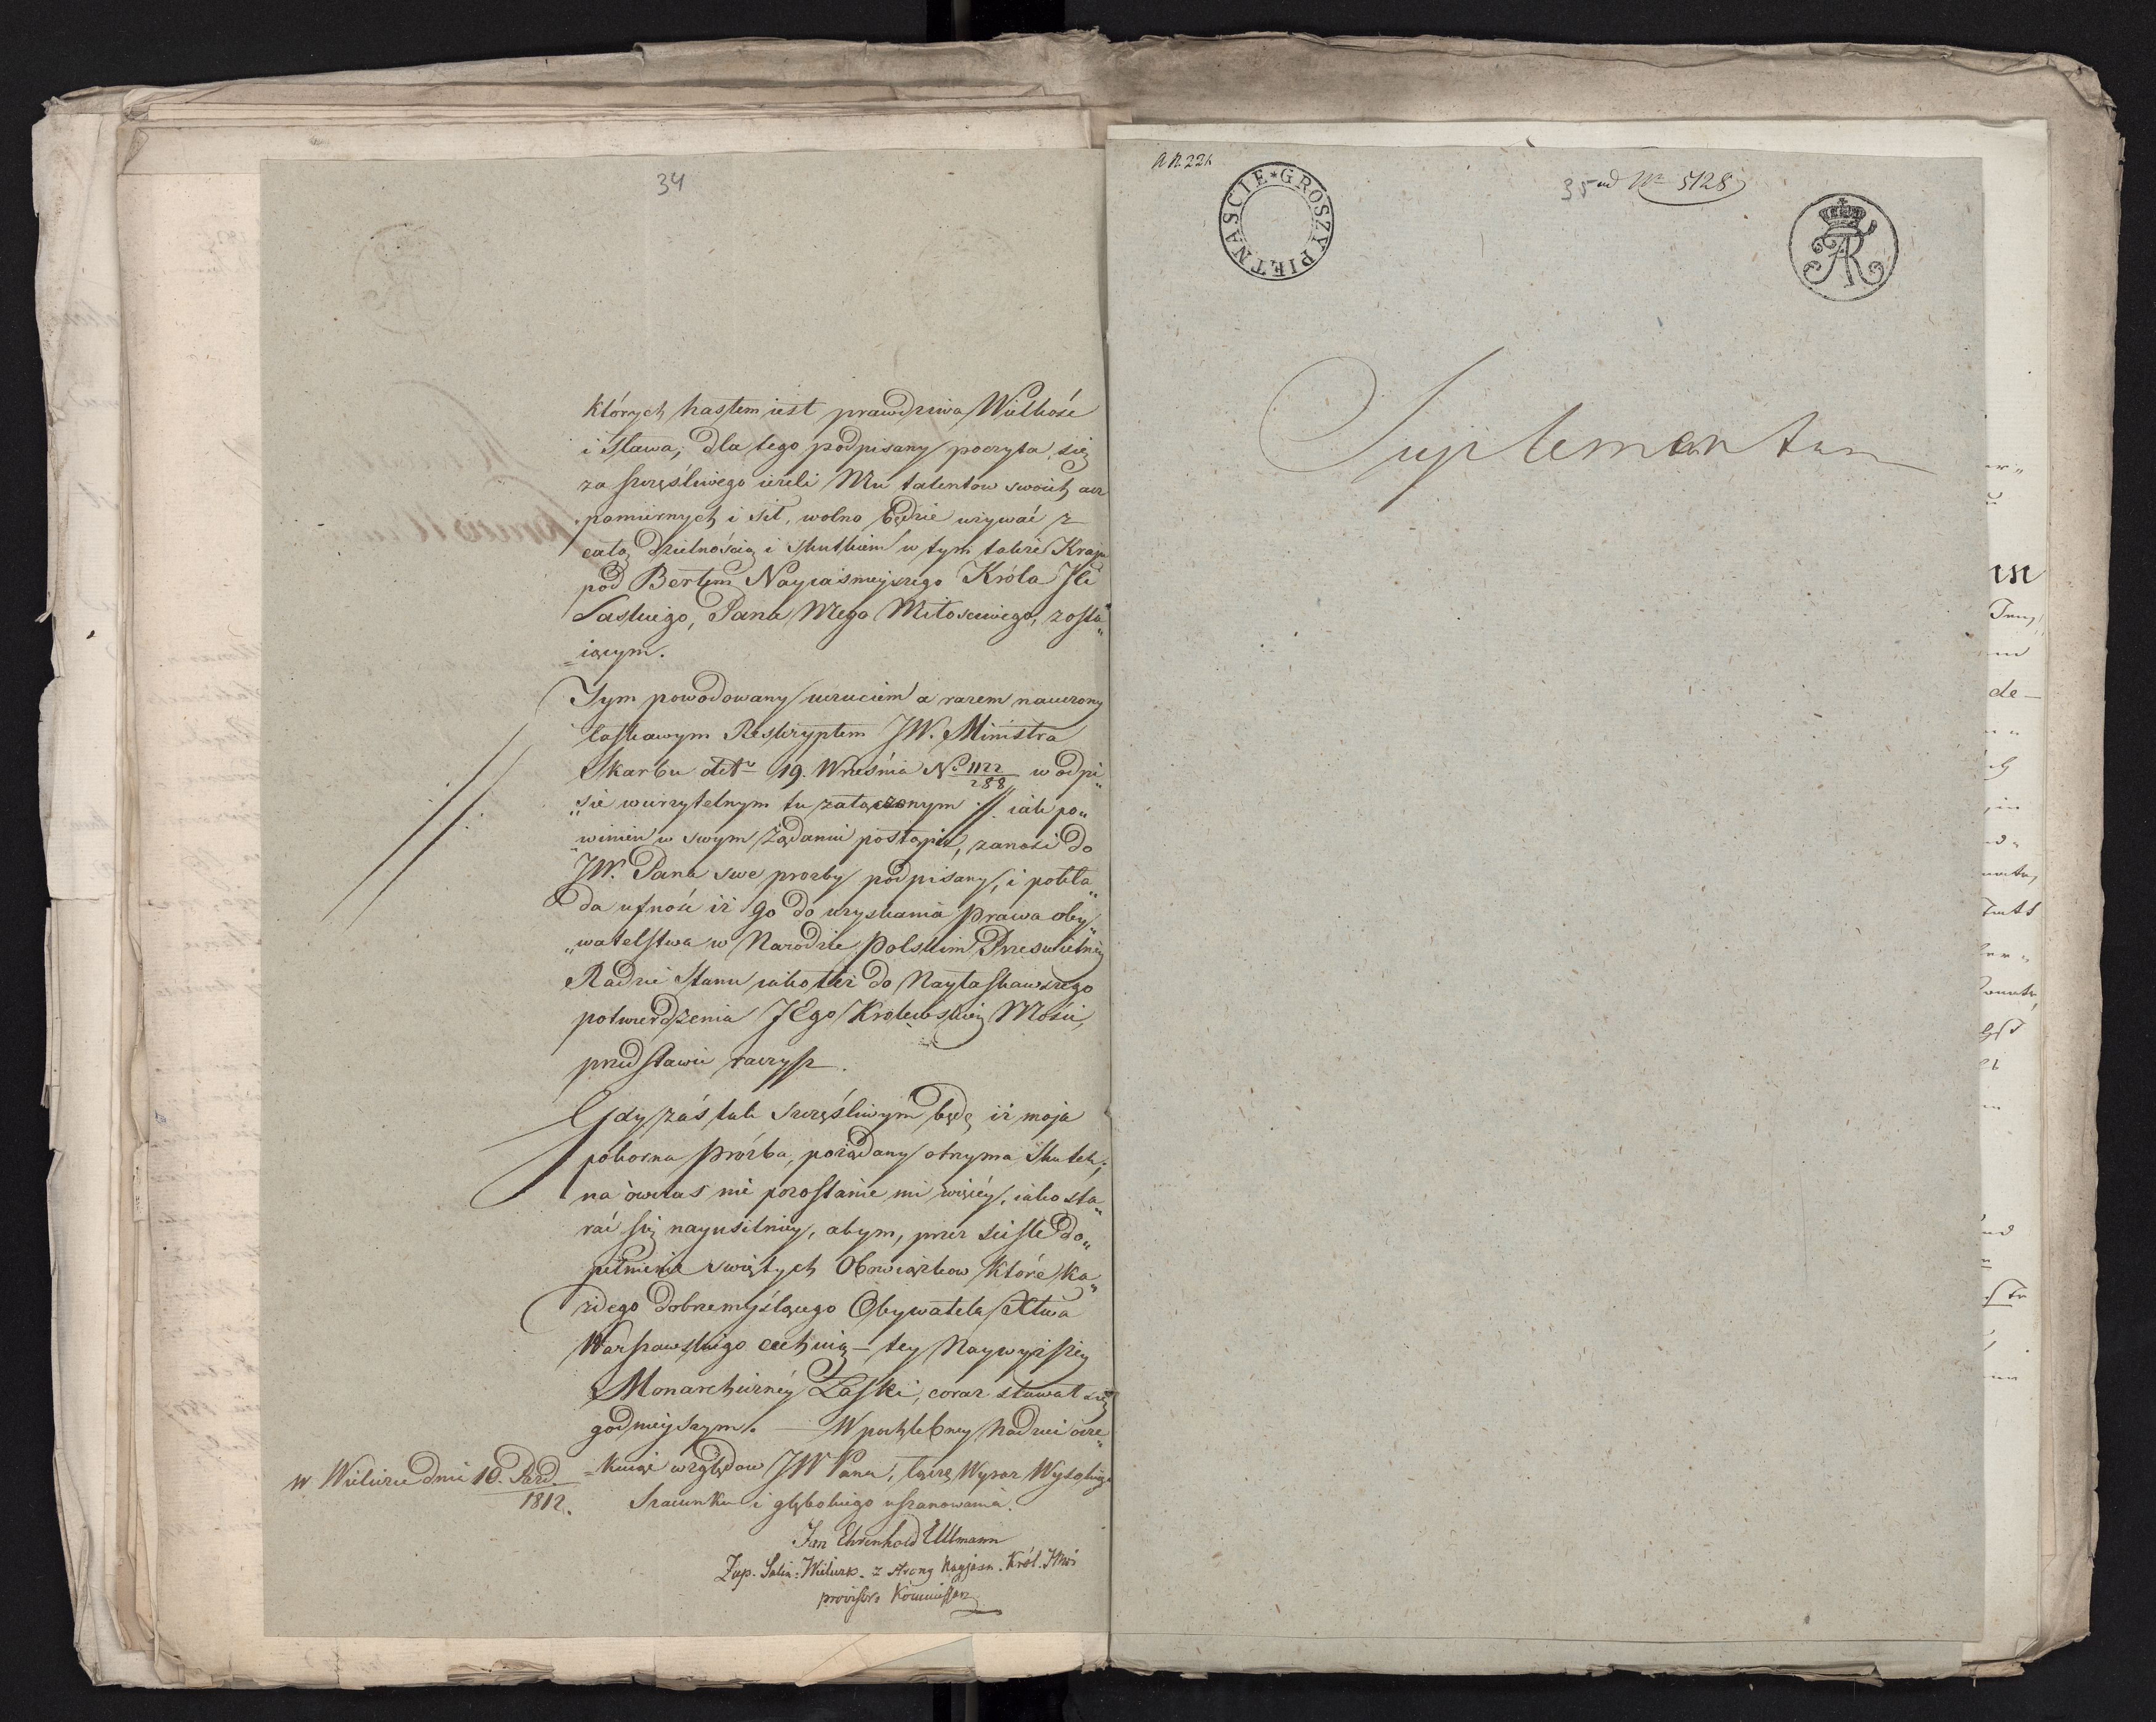 34
których hasłem iest prawdziwa Wielkość
i Sława; dla tego podpisany poczyta się
za szczęśliwego ieżeli Mu talentów swoich acz
pomiernych i sił, wolno będzie używać z
całą dzielnością i skutkiem w tym także Kraju
pod Berłem Nayiaśnieyszego Króla JCi
Saskiego, Pana Mego Miłościwego, zosta„
„iącym.
Tym powodowany uczuciem a razem nauczony
łaskawym Reskryptem JW. Ministra
Skarbu dtto 19. Września No 1122/288 w odpi„
„sie wierzytelnym tu załączonym .//. iak po„
„winien w swym żądaniu postąpić, zanosi do
JW. Pana swe prozby podpisany, i pokła„
da ufność iż go do uzyskania prawa oby„
„watelstwa w Narodzie Polskim Prześwietney
Radzie Stanu iako też do Nayłaskawszego
potwierdzenia JEgo Królewskiey Mości,
przedstawić raczysz.
Gdy zaś tak szczęśliwym będę iż moja
pokorna prózba, pożądany otrzyma skutek,
na ówczas nie pozostanie mi więcéy, iako sta„
rać się nayusilniey, abym, przez ścisłe do„
pełnienie świętych Obowiązkow które ka„
żdego dobrze myślącego Obywatela Xtwa
Warszawskiego cechuią – tey Naywyższey
Monarchicznéy Łaski, coraz stawał się
godnieyszym. — W pochlebney Nadziei ocze„
„kuiąc względow JW Pana, łączę Wyraz Wysokiego
Szacunku i głębokiego uszanowania.
w Wieliczce dnia 10. Paźd.
1812.
Jan Ehrenhold Ullmann
Żup. Salin: Wielicz. z strony Nayjaśn. Król. JMci
prowisor. Kommissarz
a n. 221.
GROSZY PIĘTNAŚCIE
35
ad No 5128
FAR
Suplementum